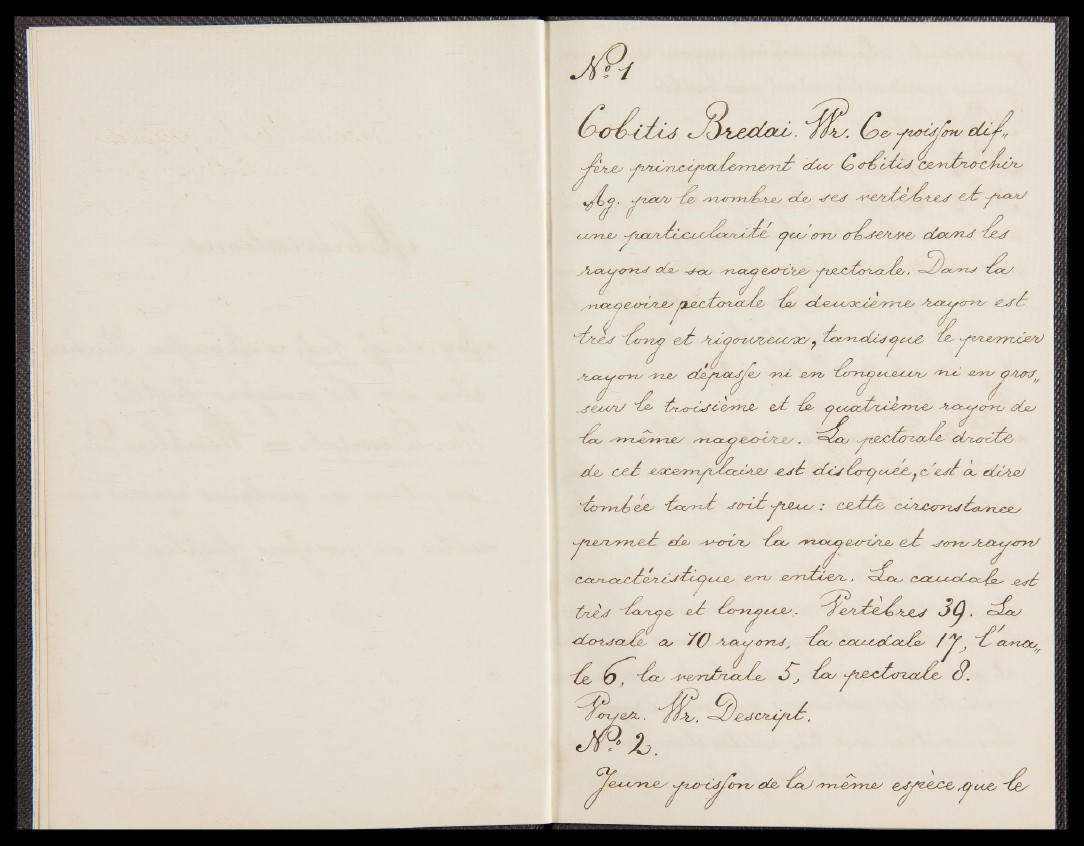 Nº 1
Cobitis Bredai. Wr. Ce poisson dif„
fère principalement du Cobitis centrochir
Ag. par le nombre de ses vertèbres et par
une particularité qu'on observe dans les
rayons de sa nageoire pectorale. Dans la
nageoire pectorale le deuxième rayon est
très long et rigoureux, tandisque le premier
rayon ne dépasse ni en longueur ni en gros„
seur le troisième et le quatrième rayon de
la même nageoire. La pectorale droite
de cet exemplaire est disloquée, c'est à dire
tombée tant soit peu : cette circonstance
permet de voir la nageoire et son rayon
caractéristique en entier. La caudale est
très large et longue. Vertèbres 39. La
dorsale a 10 rayons, la caudale 17, l'ana„
le 6, la ventrale 5, la pectorale 8.
Voyez. Wr. Descript.
Nº 2.
Jeune poisson de la même espèce que le